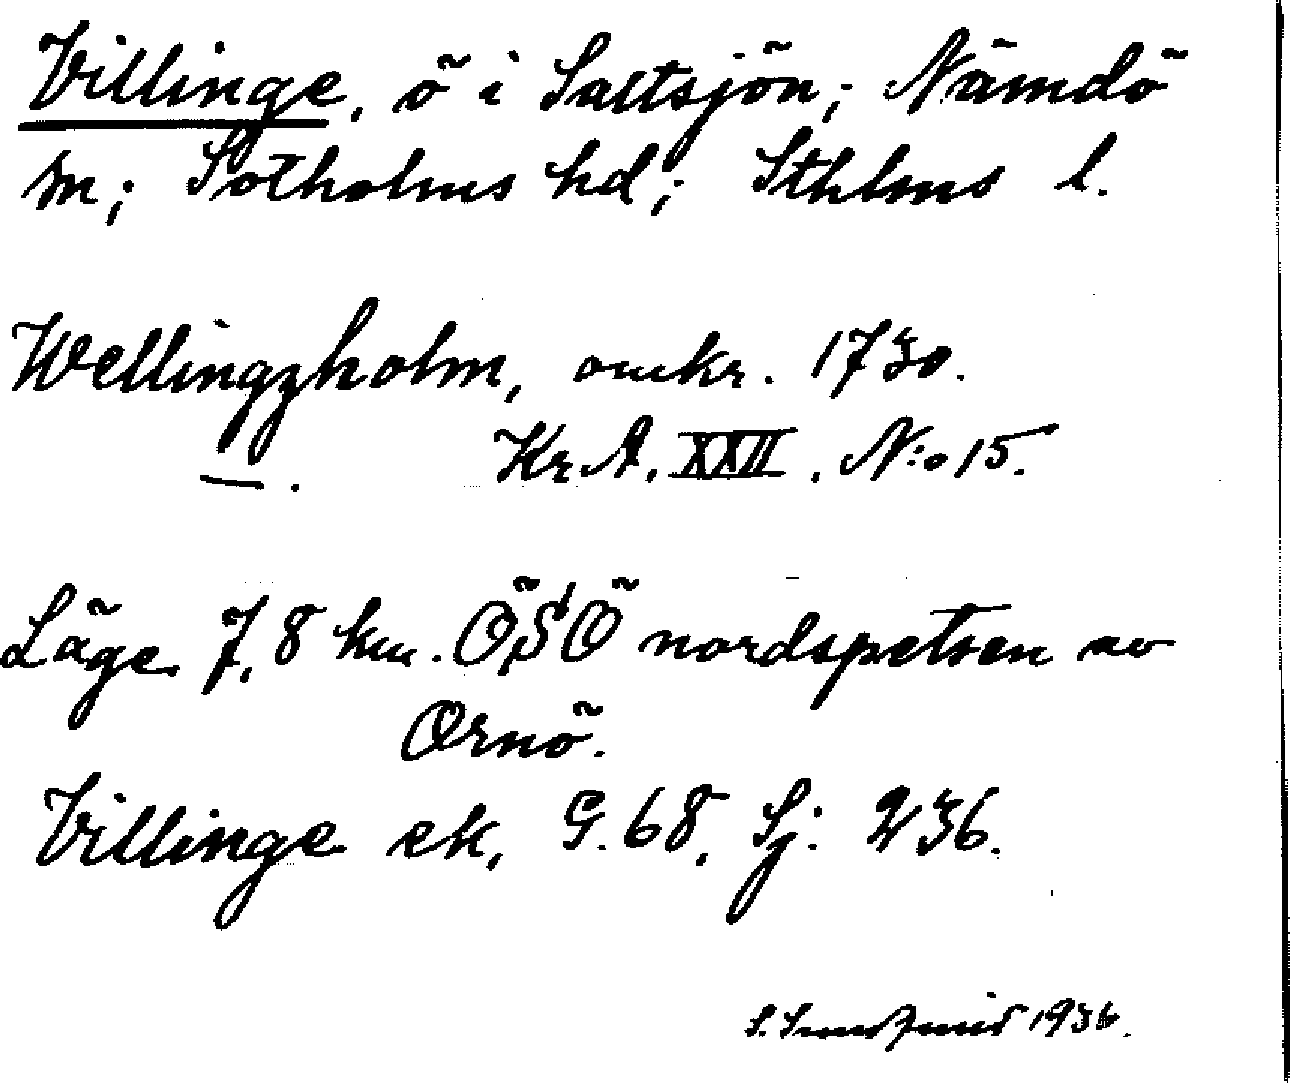 Villinge, ö i Saltsjön; Nämdö
sn; Sotholms hd; Sthlms l.
Wellingzholm, omkr. 1730.
—. Kr. A. XXII. N:o 15.
Läge 7,8 km. ÖSÖ nordspetsen av
Ornö.
Villinge ek, G. 68, Sj: 236.
S. 1936.